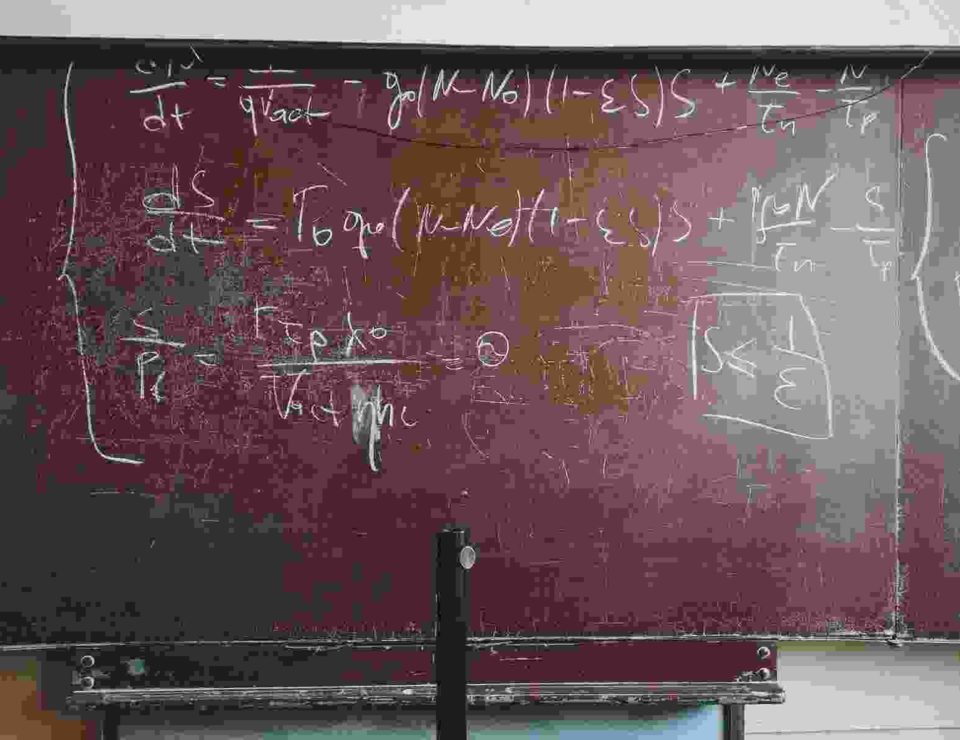 dN/dt = I/(qVact) - g₀(N-N₀)(1-εS)S + Ne/τn - N/τp
dS/dt = Γ₀ g₀(N-N₀)(1-εS)S + Γ₀N/τn - S/τp
S/Pf = Γτpλ₀/(Vact ηhc) = ②
S ≤ 1/ε